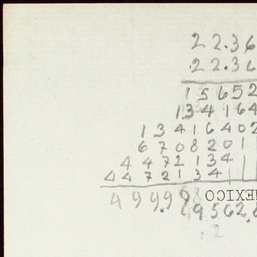 22.36
22.36
15652
134164
13416402
6708201
4472134
4472134
499.98
EXICO
9562.
2